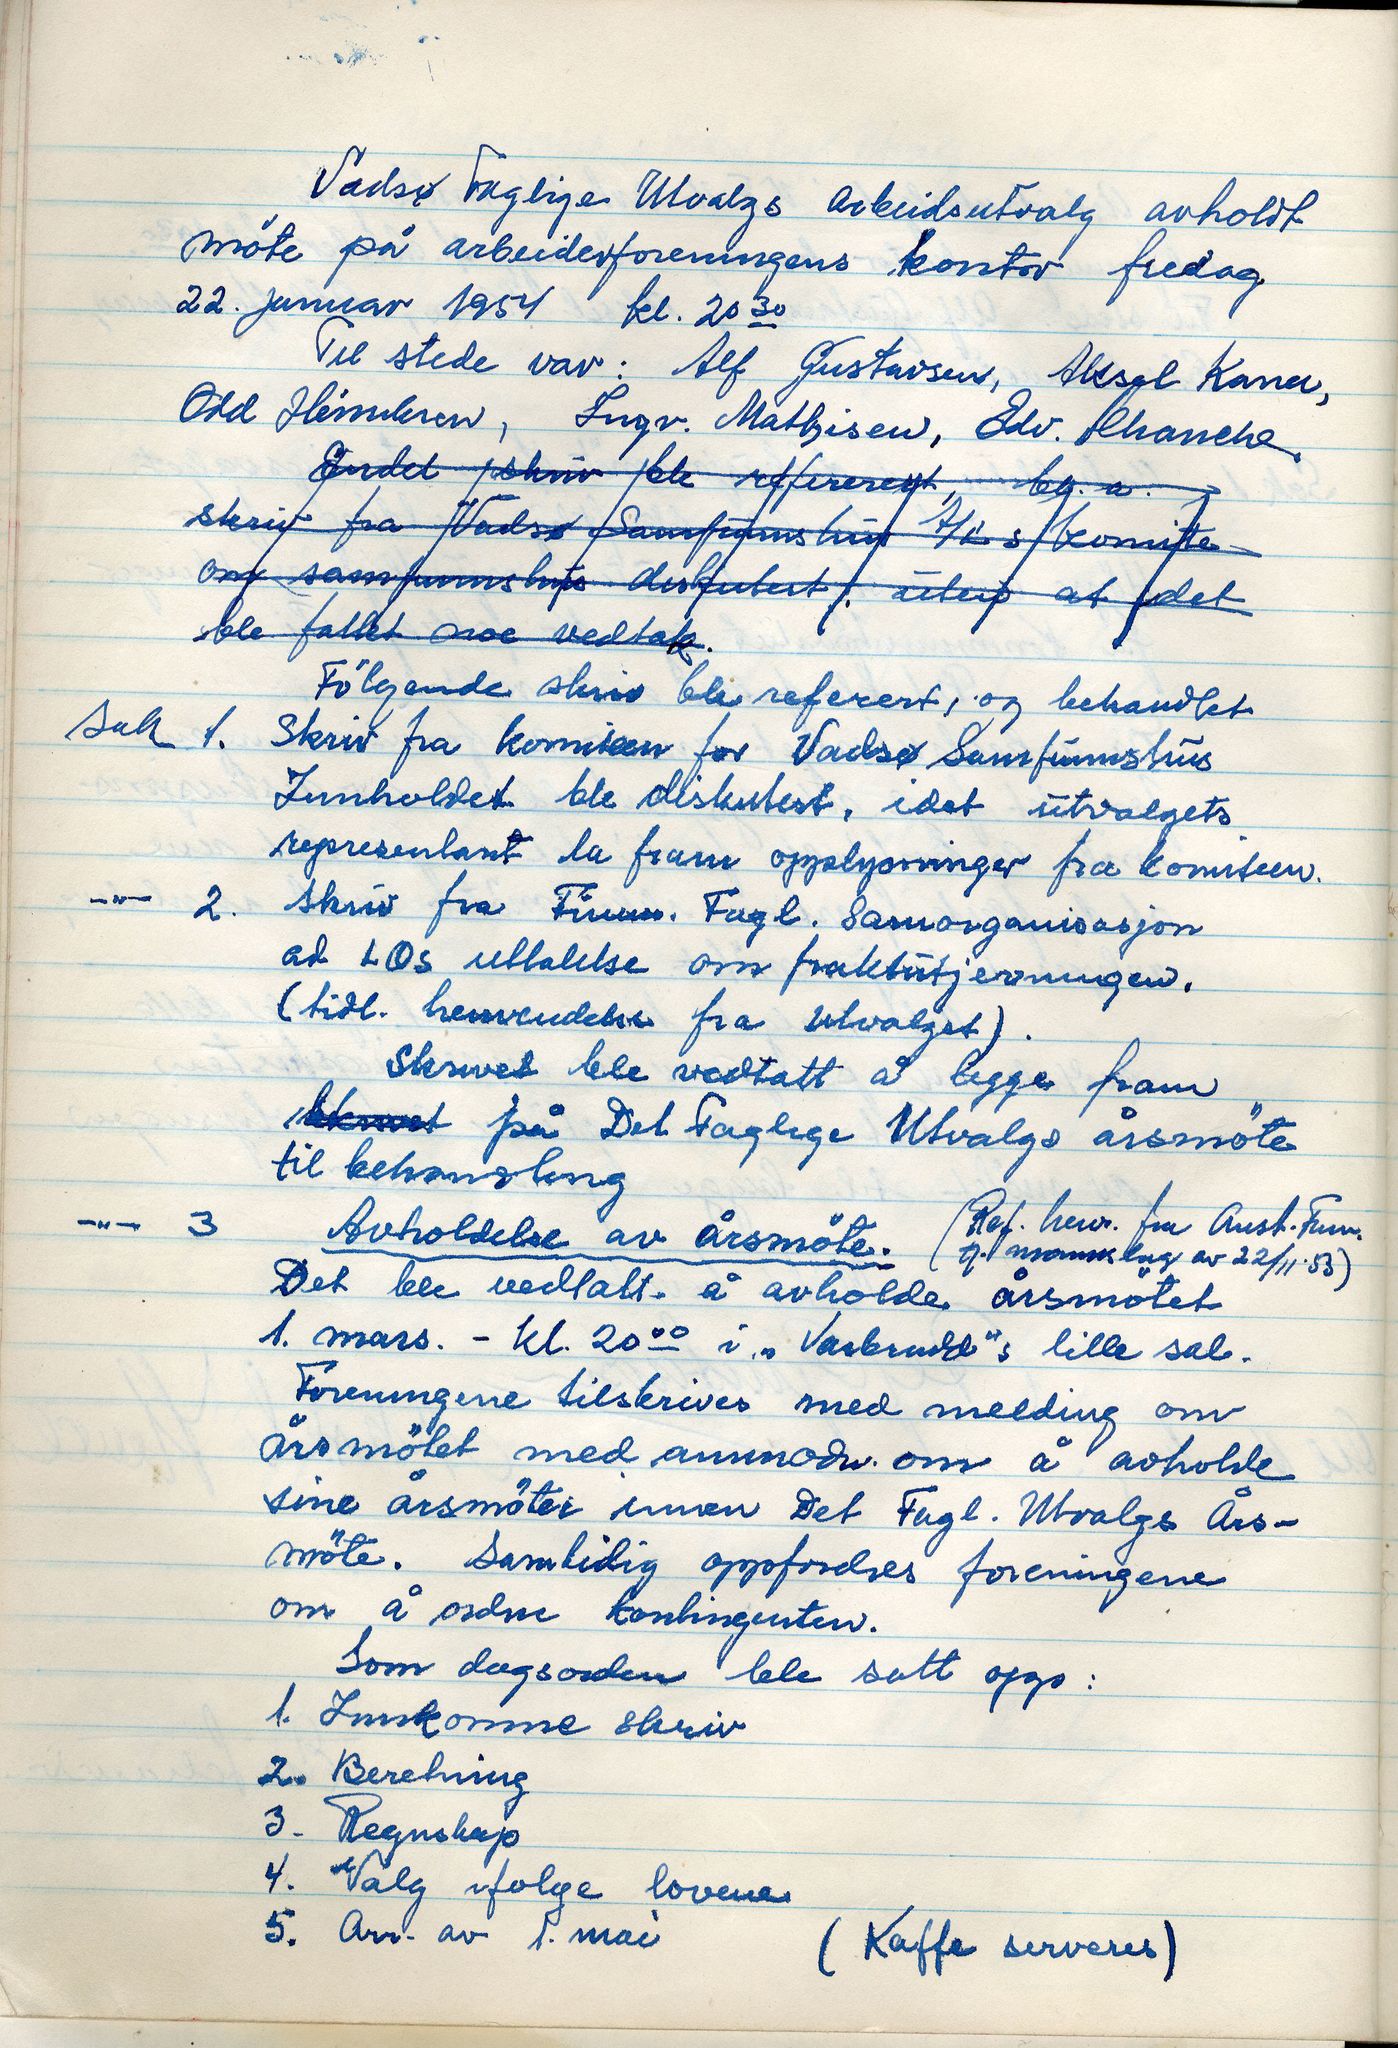 Vadsø Faglige Utvalgs arbeidsutvalg avholdt
møte på arbeiderforeningens kontor fredag
22. januar 1954 kl. 20 30
Til stede var: Alf Gustavsen, Aksel Kana,
Odd Henriksen, Ingv. Mathisen, Edv. Khanche.
Endel skriv ble referert, bl. a.
skriv fra Vadsø Samfunnshus A/L s komite
om samfunnshus diskutert, uten at det
ble fattet noe vedtak.
Følgende skriv ble referert, og behandlet
Sak 1. Skriv fra komiteen for Vadsø Samfunnshus
Innholdet ble diskutert, idet utvalgets
representant la fram opplysninger fra komiteen.
-"- 2. Skriv fra Finnm. Fagl. Samorganisasjon
ad LOs uttalelse om fraktutjevningen.
(tidl. henvendelse fra Utvalget).
Skrivet ble vedtatt å legge fram
skrivet på Det Faglige Utvalgs årsmöte
til behandling
-"- 3 Avholdelse av årsmöte. (Ref. henv. fra Aust-Finnm.
mannslag av 22/11.53)
Det ble vedtatt å avholde årsmötet
1. mars. - kl. 20 00 i "Varbrudd"s lille sal.
Foreningene tilskrives med melding om
årsmötet med anmodn. om å avholde
sine årsmöter innen Det Fagl. Utvalgs Års-
möte. Samtidig oppfordres foreningene
om å ordne kontingenten.
Som dagsorden ble satt opp:
1. Innkomne skriv
2. Beretning
3. Regnskap
4. Valg ifølge lovene
5. Arr. av 1. mai (Kaffe serveres)